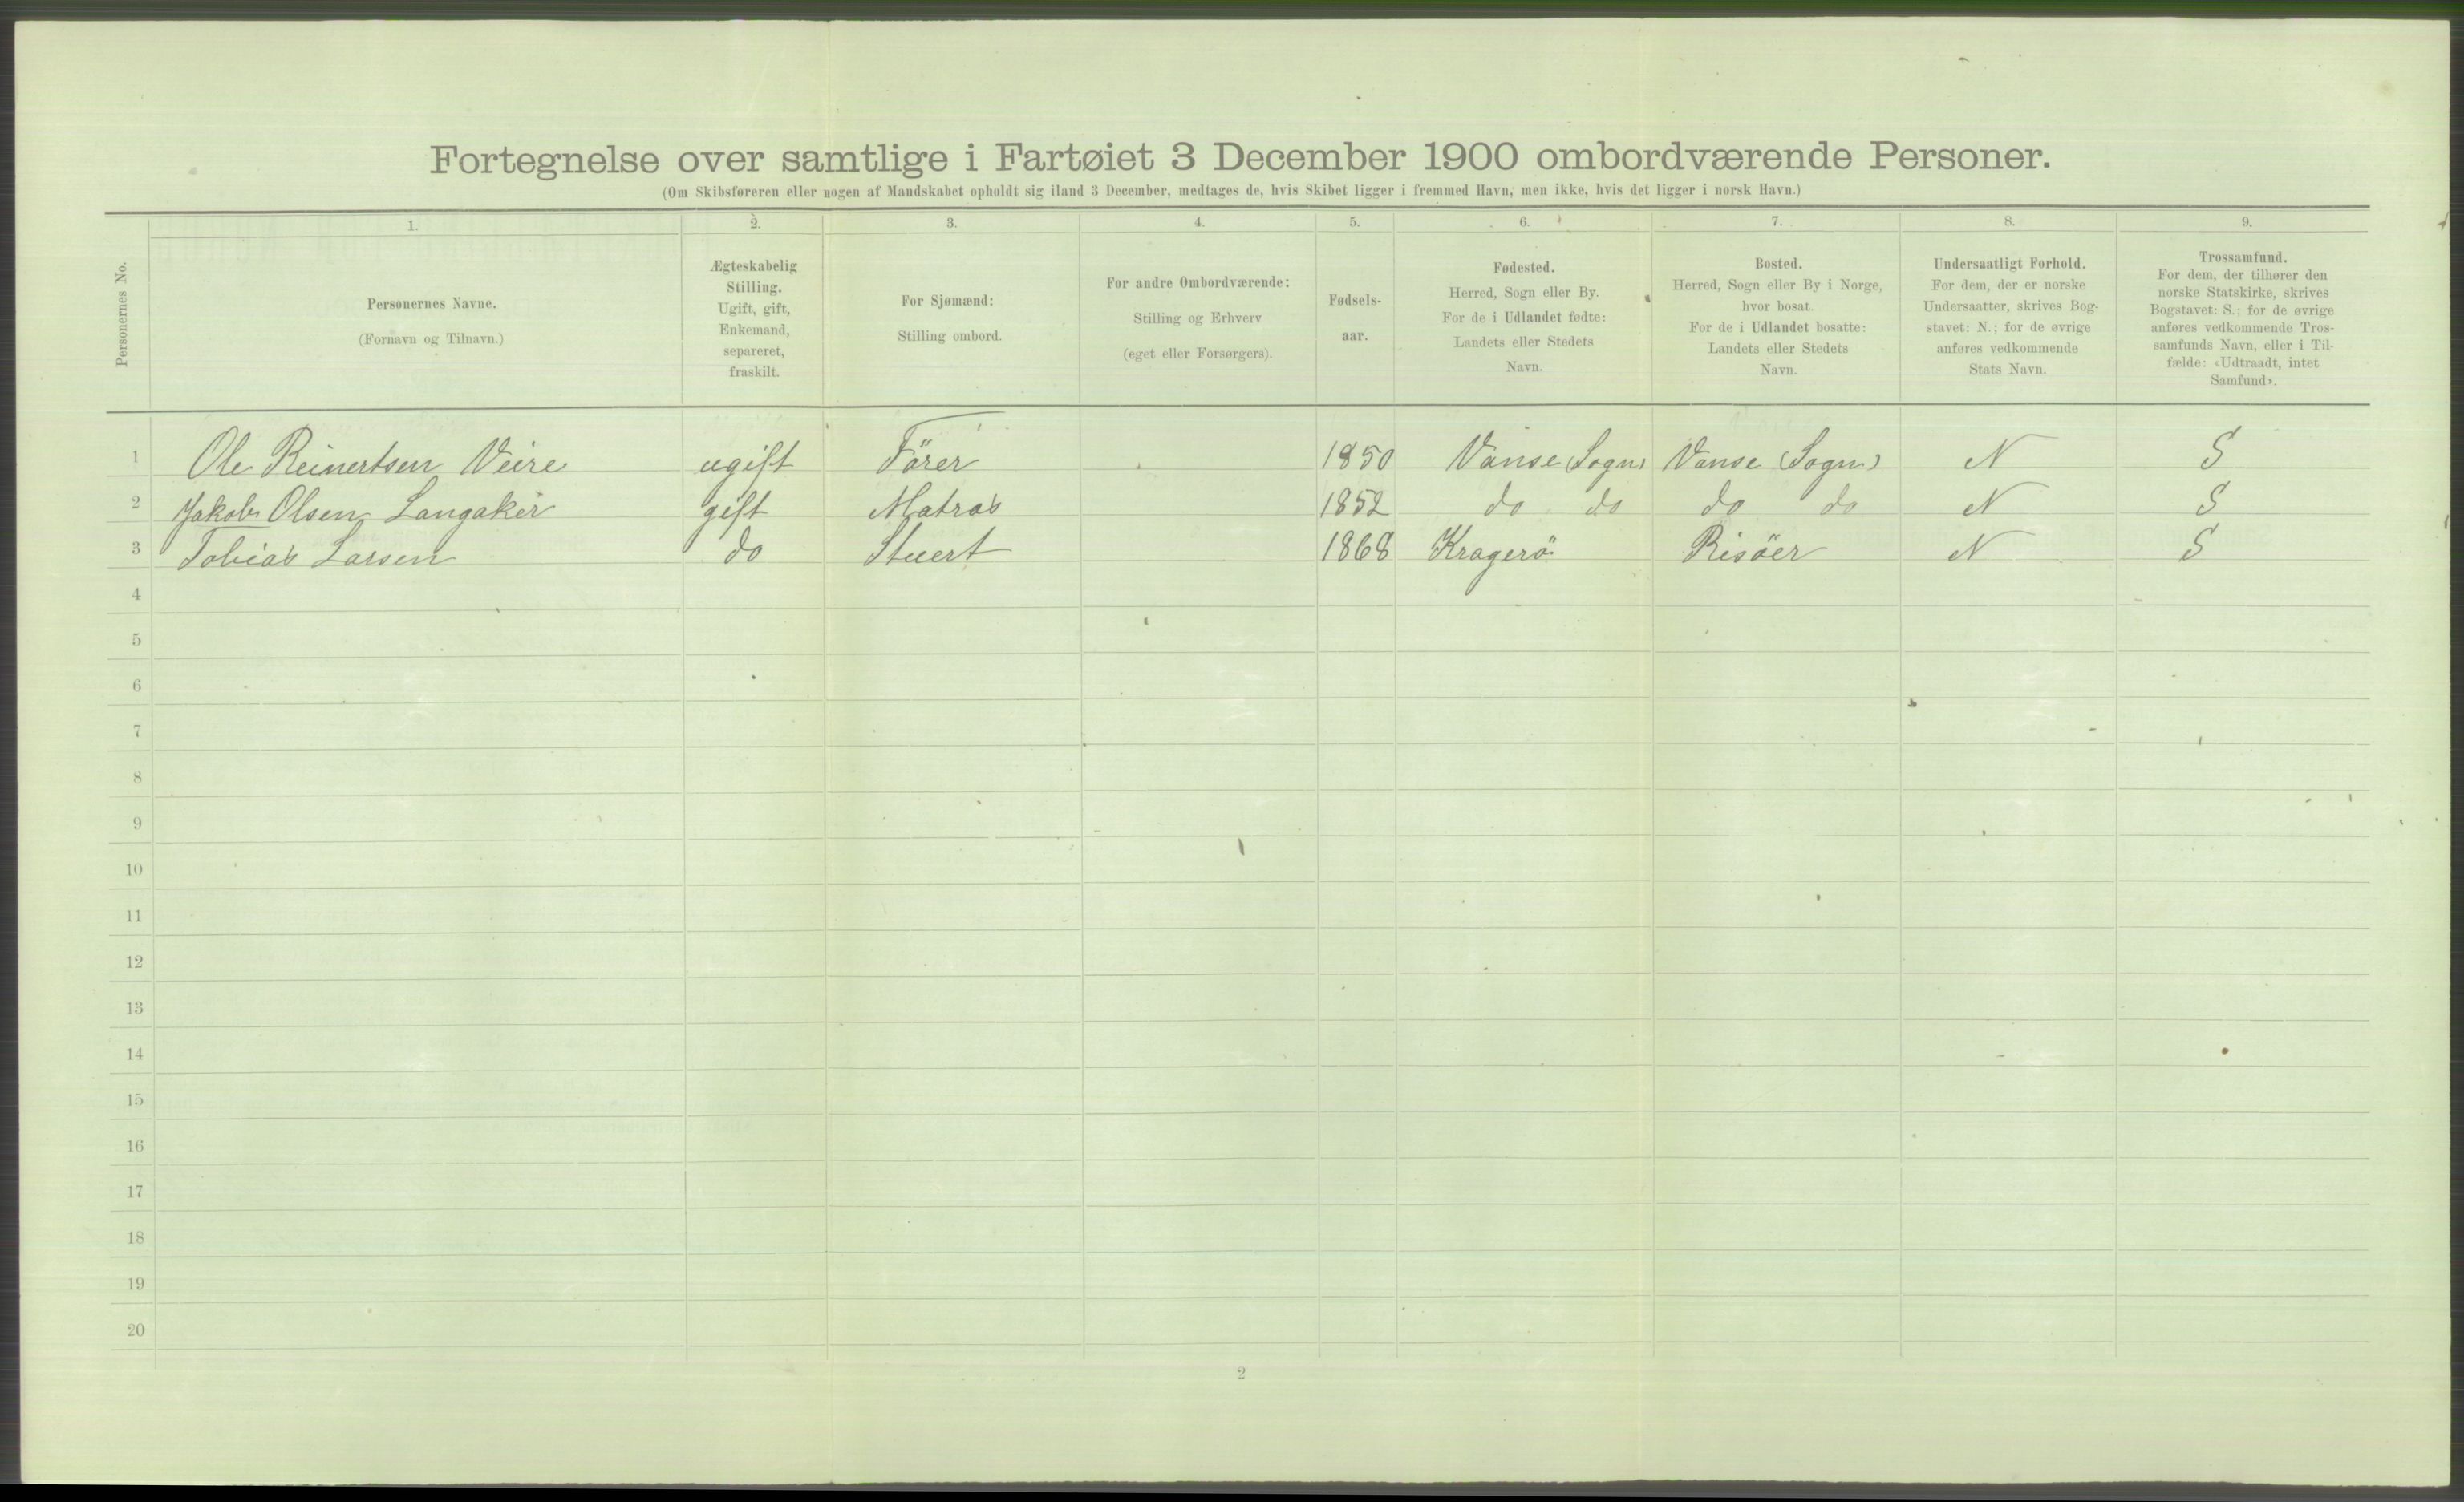 Fortegnelse over samtlige i Fartøiet 3 December 1900 ombordværende Personer.
(Om Skibsføreren eller nogen af Mandskabet opholdt sig iland 3 December, medtages de, hvis Skibet ligger i fremmed Havn, men ikke, hvis det ligger i norsk Havn.)
Personernes No.
1.
Personernes Navne.
(Fornavn og Tilnavn.)
2.
Ægteskabelig
Stilling.
Ugift, gift,
Enkemand,
separeret,
fraskilt.
3.
For Sjømænd:
Stilling ombord.
4.
For andre Ombordværende:
Stilling og Erhverv
(eget eller Forsørgers).
5.
Fødsels-
aar.
6.
Fødested.
Herred, Sogn eller By.
For de i Udlandet fødte:
Landets eller Stedets
Navn.
7.
Bosted.
Herred, Sogn eller By i Norge,
hvor bosat.
For de i Udlandet bosatte:
Landets eller Stedets
Navn.
8.
Undersaatligt Forhold.
For dem, der er norske
Undersaatter, skrives Bog-
stavet: N.; for de øvrige
anføres vedkommende
Stats Navn.
9.
Trossamfund.
For dem, der tilhører den
norske Statskirke, skrives
Bogstavet: S.; for de øvrige
anføres vedkommende Tros-
samfunds Navn, eller i Til-
fælde: «Udtraadt, intet
Samfund».
1 Ole Reinertsen Veire ugift Förer 1850 Vanse (Sogn) Vanse (Sogn) N S
2 Jakob Olsen Langaker gift Matros 1852 do do do do N S
3 Tobias Larsen do Stuert 1868 Kragerö Risöer N S
4
5
6
7
8
9
10
11
12
13
14
15
16
17
18
19
20
2